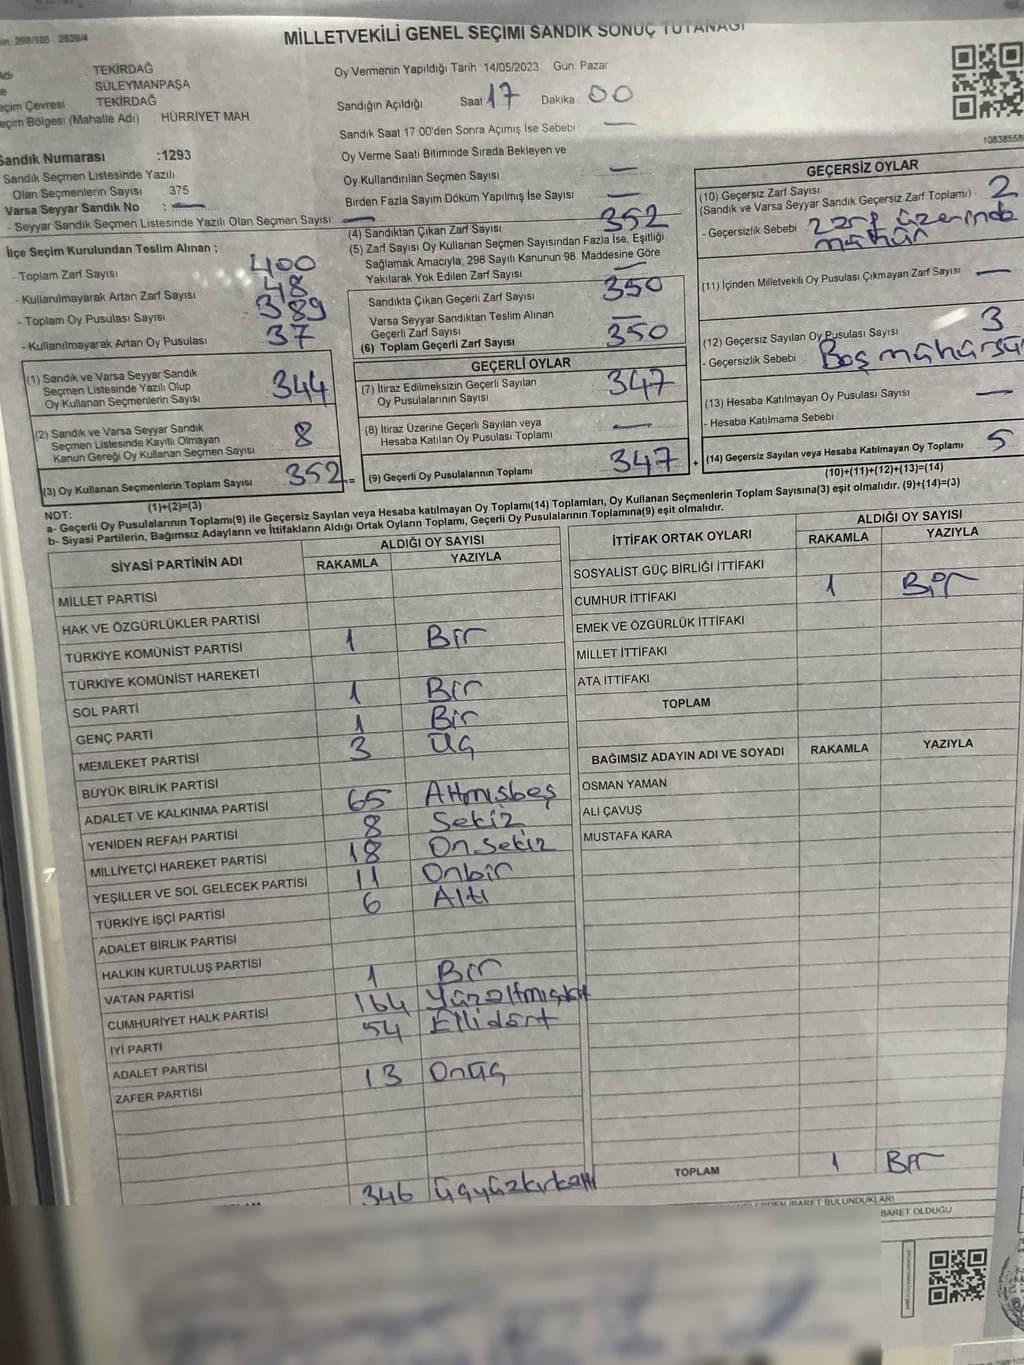 MİLLETVEKİLİ GENEL SEÇİMİ SANDIK SONUÇ TUTANAĞI
TEKİRDAĞ
SÜLEYMANPAŞA
Seçim Çevresi TEKİRDAĞ
Seçim Bölgesi (Mahalle Adı) HÜRRİYET MAH
Sandık Numarası :1293
Sandık Seçmen Listesinde Yazılı
Olan Seçmenlerin Sayısı 375
Varsa Seyyar Sandık No : —
- Seyyar Sandık Seçmen Listesinde Yazılı Olan Seçmen Sayısı: —
Oy Vermenin Yapıldığı Tarih 14/05/2023 Gün: Pazar
Sandığın Açıldığı Saat 17 Dakika 00
Sandık Saat 17:00'den Sonra Açımış İse Sebebi —
Oy Verme Saati Bitiminde Sırada Bekleyen ve
Oy Kullandırılan Seçmen Sayısı —
Birden Fazla Sayım Döküm Yapılmış İse Sayısı —
İlçe Seçim Kurulundan Teslim Alınan ;
- Toplam Zarf Sayısı 400
- Kullanılmayarak Artan Zarf Sayısı 48
- Toplam Oy Pusulası Sayısı 389
- Kullanılmayarak Artan Oy Pusulası 37
(1) Sandık ve Varsa Seyyar Sandık
Seçmen Listesinde Yazılı Olup
Oy Kullanan Seçmenlerin Sayısı 344
(2) Sandık ve Varsa Seyyar Sandık
Seçmen Listesinde Kayıtlı Olmayan
Kanun Gereği Oy Kullanan Seçmen Sayısı 8
(3) Oy Kullanan Seçmenlerin Toplam Sayısı 352 =
(1)+(2)=(3)
(4) Sandıktan Çıkan Zarf Sayısı 352
(5) Zarf Sayısı Oy Kullanan Seçmen Sayısından Fazla İse, Eşitliği
Sağlamak Amacıyla; 298 Sayılı Kanunun 98. Maddesine Göre
Yakılarak Yok Edilen Zarf Sayısı —
Sandıkta Çıkan Geçerli Zarf Sayısı 350
Varsa Seyyar Sandıktan Teslim Alınan
Geçerli Zarf Sayısı —
(6) Toplam Geçerli Zarf Sayısı 350
GEÇERLİ OYLAR
(7) İtiraz Edilmeksizin Geçerli Sayılan
Oy Pusulalarının Sayısı 347
(8) İtiraz Üzerine Geçerli Sayılan veya
Hesaba Katılan Oy Pusulası Toplamı —
(9) Geçerli Oy Pusulalarının Toplamı 347 +
GEÇERSİZ OYLAR
(10) Geçersiz Zarf Sayısı
(Sandık ve Varsa Seyyar Sandık Geçersiz Zarf Toplamı) 2
- Geçersizlik Sebebi zarf üzerinde
mühür
(11) İçinden Milletvekili Oy Pusulası Çıkmayan Zarf Sayısı —
(12) Geçersiz Sayılan Oy Pusulası Sayısı 3
- Geçersizlik Sebebi Boş
(13) Hesaba Katılmayan Oy Pusulası Sayısı —
- Hesaba Katılmama Sebebi
(14) Geçersiz Sayılan veya Hesaba Katılmayan Oy Toplamı 5
(10)+(11)+(12)+(13)=(14)
NOT:
a- Geçerli Oy Pusulalarının Toplamı(9) ile Geçersiz Sayılan veya Hesaba katılmayan Oy Toplamı(14) Toplamları, Oy Kullanan Seçmenlerin Toplam Sayısına(3) eşit olmalıdır. (9)+(14)=(3)
b- Siyasi Partilerin, Bağımsız Adayların ve İttifakların Aldığı Ortak Oyların Toplamı, Geçerli Oy Pusulalarının Toplamına(9) eşit olmalıdır.
SİYASİ PARTİNİN ADI ALDIĞI OY SAYISI
RAKAMLA YAZIYLA
MİLLET PARTİSİ
HAK VE ÖZGÜRLÜKLER PARTİSİ
TÜRKİYE KOMÜNİST PARTİSİ 1 Bir
TÜRKİYE KOMÜNİST HAREKETİ
SOL PARTİ 1 Bir
GENÇ PARTİ 1 Bir
MEMLEKET PARTİSİ 3 üç
BÜYÜK BİRLİK PARTİSİ
ADALET VE KALKINMA PARTİSİ 65 Altmışbeş
YENİDEN REFAH PARTİSİ 8 Sekiz
MİLLİYETÇİ HAREKET PARTİSİ 18 Onsekiz
YEŞİLLER VE SOL GELECEK PARTİSİ 11 Onbir
TÜRKİYE İŞÇİ PARTİSİ 6 Altı
ADALET BİRLİK PARTİSİ
HALKIN KURTULUŞ PARTİSİ
VATAN PARTİSİ 1 Bir
CUMHURİYET HALK PARTİSİ 164
İYİ PARTİ 54 Ellidört
ADALET PARTİSİ
ZAFER PARTİSİ 13 Onüç
346
İTTİFAK ORTAK OYLARI ALDIĞI OY SAYISI
RAKAMLA YAZIYLA
SOSYALİST GÜÇ BİRLİĞİ İTTİFAKI
CUMHUR İTTİFAKI 1 Bir
EMEK VE ÖZGÜRLÜK İTTİFAKI
MİLLET İTTİFAKI
ATA İTTİFAKI
TOPLAM
BAĞIMSIZ ADAYIN ADI VE SOYADI RAKAMLA YAZIYLA
OSMAN YAMAN
ALİ ÇAVUŞ
MUSTAFA KARA
TOPLAM 1 Bir
BARET OLDUĞU